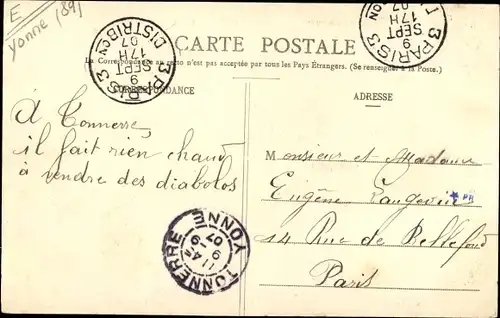 E
Yonne (89)
3 PARIS 3
9
SEPT
17H
07
DISTRIBon
3 PARIS 3
9
SEPT
17H
07
CARTE POSTALE
La Correspondance au recto n'est pas acceptée par tous les Pays Étrangers. (Se renseigner à la Poste.)
CORRESPONDANCE
ADRESSE
À Tonnerre,
il fait rien chaud
à vendre des diabolos
Monsieur et Madame
Eugène Langevin
* PR
14 Rue de Bellefond
Paris
TONNERRE
11 4E
9
07
YONNE